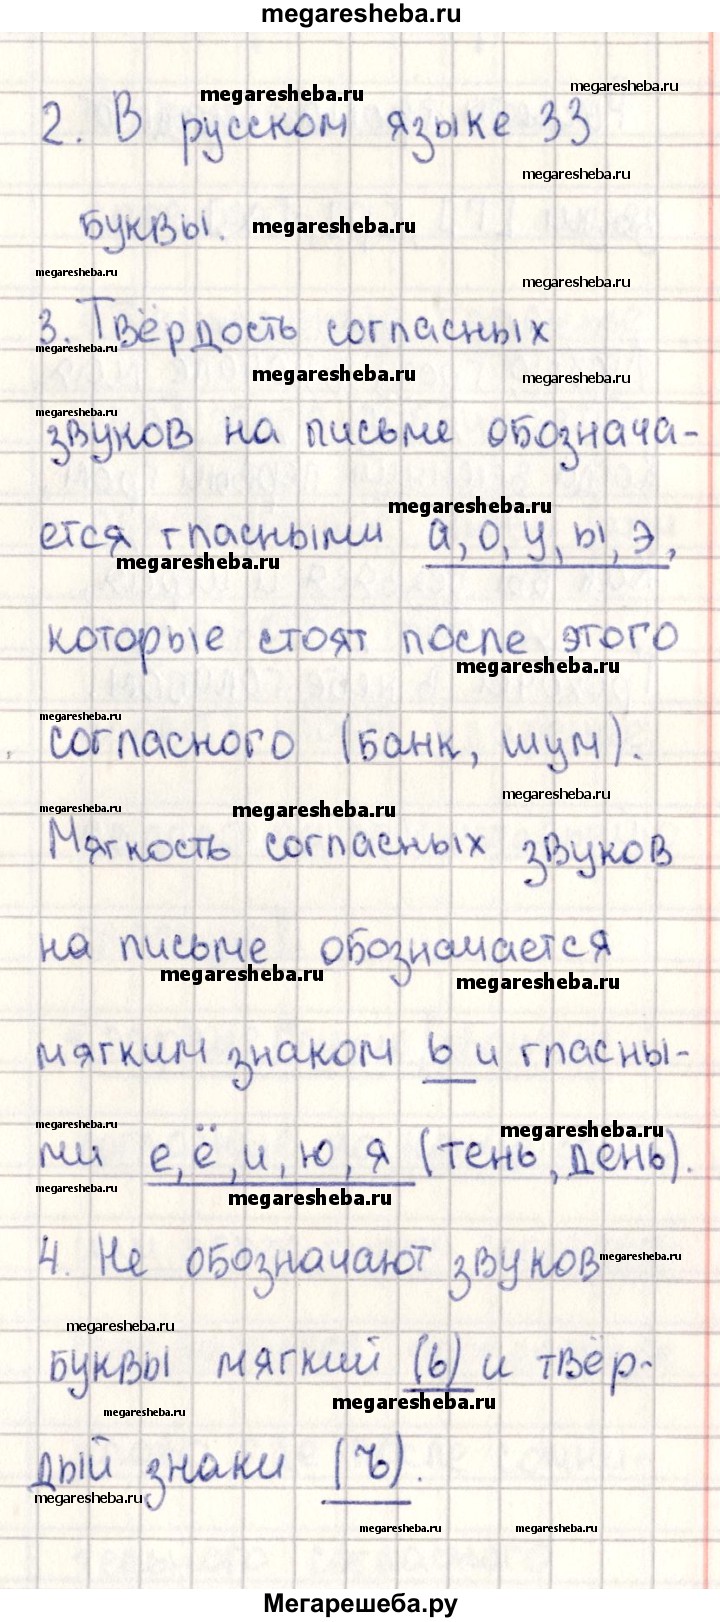 megaresheba.ru
megaresheba.ru
megaresheba.ru
2. В русском языке 33
megaresheba.ru
буквы.
megaresheba.ru
megaresheba.ru
megaresheba.ru
3. Твёрдость согласных
megaresheba.ru
megaresheba.ru
megaresheba.ru
megaresheba.ru
звуков на письме обознача-
megaresheba.ru
ется гласными а, о, у, ы, э,
megaresheba.ru
которые стоят после этого
megaresheba.ru
megaresheba.ru
согласного (банк, шум).
megaresheba.ru
megaresheba.ru
megaresheba.ru
Мягкость согласных звуков
на письме обозначается
megaresheba.ru
megaresheba.ru
мягким знаком ь и гласны-
megaresheba.ru
megaresheba.ru
ми е, ё, и, ю, я (тень, день).
megaresheba.ru
megaresheba.ru
4. Не обозначают звуков
megaresheba.ru
megaresheba.ru
буквы мягкий (ь) и твёр-
megaresheba.ru
megaresheba.ru
дый знаки (ъ).
megaresheba.ru
megaresheba.ru
megaresheba.ru
Мегарешеба.ру